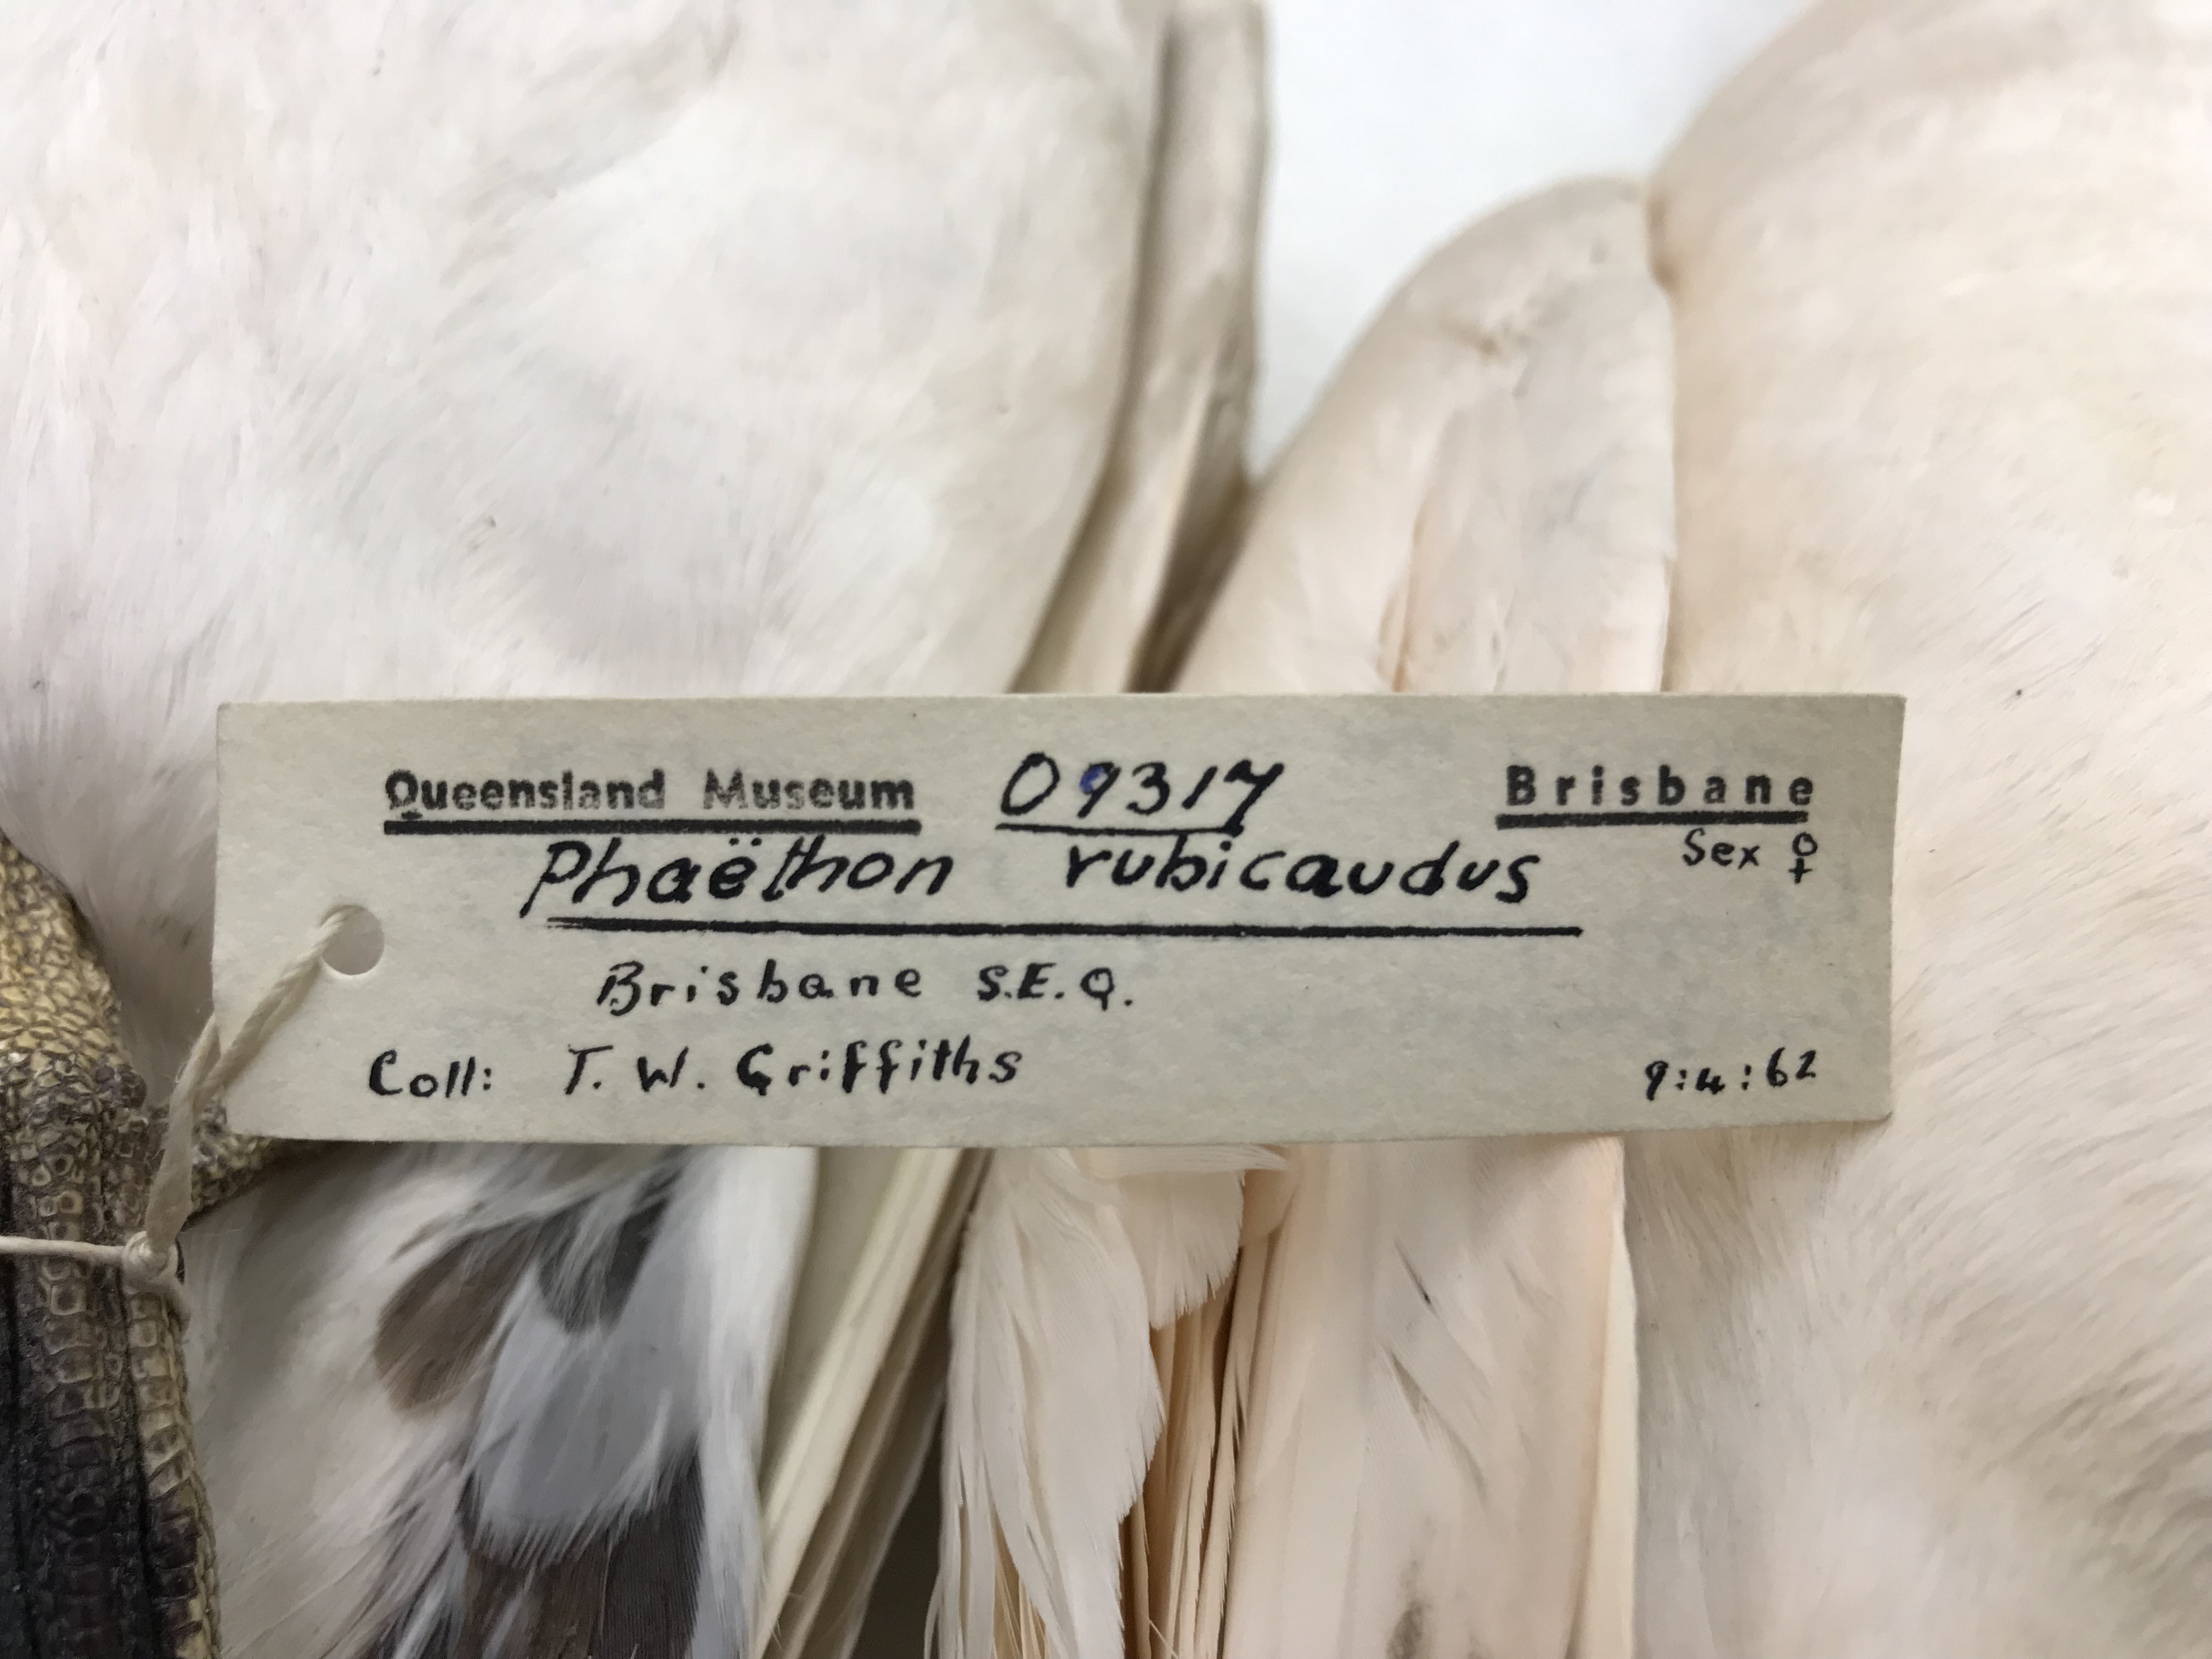 Queensland Museum 09314 Brisbane
Sex ♀
Phaëthon rubicaudus
Brisbane S.E.Q.
Coll: T. W. Griffiths 9:4:62